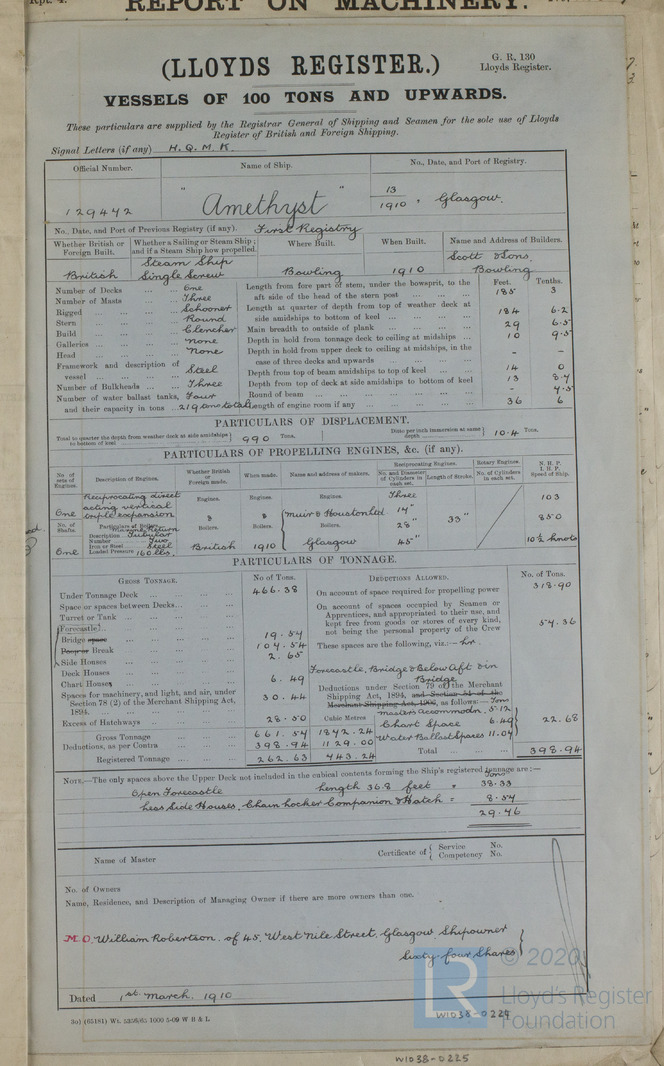 Rpt. 4.
REPORT ON MACHINERY.
(LLOYDS REGISTER.)
G. R. 130
Lloyds Register.
VESSELS OF 100 TONS AND UPWARDS.
These particulars are supplied by the Registrar General of Shipping and Seamen for the sole use of Lloyds
Register of British and Foreign Shipping.
Signal Letters (if any) H. Q. M. K.
Official Number. Name of Ship. No., Date, and Port of Registry.
129442 " Amethyst " 13/1910 . Glasgow.
No., Date, and Port of Previous Registry (if any). First Registry
Whether British or Foreign Built. Whether a Sailing or Steam Ship; and if a Steam Ship how propelled. Where Built. When Built. Name and Address of Builders.
British Steam Ship Single Screw Bowling 1910 Scott & Sons, Bowling
Feet. Tenths.
Number of Decks ... ... One
Number of Masts ... ... Three
Rigged ... ... Schooner
Stern ... ... Round
Build ... ... Clencher
Galleries ... ... none
Head ... ... None
Framework and description of vessel ... ... Steel
Number of Bulkheads ... ... Three
Number of water ballast tanks, Four
and their capacity in tons ... 219 tons total
Length from fore part of stem, under the bowsprit, to the aft side of the head of the stern post ... 185 3
Length at quarter of depth from top of weather deck at side amidships to bottom of keel ... 184 6.2
Main breadth to outside of plank ... 29 6.5
Depth in hold from tonnage deck to ceiling at midships ... 10 9.5
Depth in hold from upper deck to ceiling at midships, in the case of three decks and upwards - -
Depth from top of beam amidships to top of keel ... 14 0
Depth from top of deck at side amidships to bottom of keel 13 8.4
Round of beam ... - 4.5
Length of engine room if any ... 36 6
PARTICULARS OF DISPLACEMENT.
Total to quarter the depth from weather deck at side amidships to bottom of keel 990 Tons. Ditto per inch immersion at same depth 10.4 Tons.
PARTICULARS OF PROPELLING ENGINES, &c. (if any).
No. of sets of Engines. Description of Engines. Whether British or Foreign made. When made. Name and address of makers. Reciprocating Engines. No. and Diameter of Cylinders in each set. Length of Stroke. Rotary Engines. No. of Cylinders in each set. N. H. P. I. H. P. Speed of Ship.
One Reciprocating direct acting vertical triple expansion Engines. Engines. Engines. Three 14" 103
No. of Shafts. Particulars of Boilers. Boilers. Boilers. Muir & Houston Ld. Boilers. 23" 33" 850
Description Marine Return Tubular
Number Two
Iron or Steel Steel
One Loaded Pressure 160 lbs. British 1910 Glasgow 45" 10½ knots
PARTICULARS OF TONNAGE.
GROSS TONNAGE. No of Tons. DEDUCTIONS ALLOWED. No. of Tons.
Under Tonnage Deck ... ... 466.38
Space or spaces between Decks ... ...
Turret or Tank ... ...
Forecastle
Bridge space ... ... 19.54
Poop or Break ... ... 104.54
Side Houses ... ... 2.65
Deck Houses ... ...
Chart Houses ... ... 6.49
Spaces for machinery, and light, and air, under Section 78 (2) of the Merchant Shipping Act, 1894. 30.44
Excess of Hatchways ... ... 28.50
On account of space required for propelling power 318.90
On account of spaces occupied by Seamen or Apprentices, and appropriated to their use, and kept free from goods or stores of every kind, not being the personal property of the Crew 54.36
These spaces are the following, viz.:—
Forecastle, Bridge & Below Aft & in Bridge
Deductions under Section 79 of the Merchant Shipping Act, 1894, and Section 54 of the Merchant Shipping Act, 1906, as follows:— Tons
masters accommodn. 5.12
Cubic Metres Chart Space 6.49 22.68
Water Ballast Spaces 11.07
Gross Tonnage 661.57 1872.24
Deductions, as per Contra 398.94 1129.00
Registered Tonnage 262.63 743.24
Total ... ... 398.94
NOTE.—The only spaces above the Upper Deck not included in the cubical contents forming the Ship's registered tonnage are:—
Tons
Open Forecastle Length 36.8 feet = 38.33
less Side Houses, Chain locker Companion & Hatch =
29.46
Name of Master Certificate of { Service No. Competency No.
No. of Owners
Name, Residence, and Description of Managing Owner if there are more owners than one.
M.O. William Robertson, of 45, West Nile Street, Glasgow Shipowner
Sixty four Shares
Dated 1st March, 1910
LR
© 2020
Lloyd's Register
Foundation
W1038-0224
W1038-0225